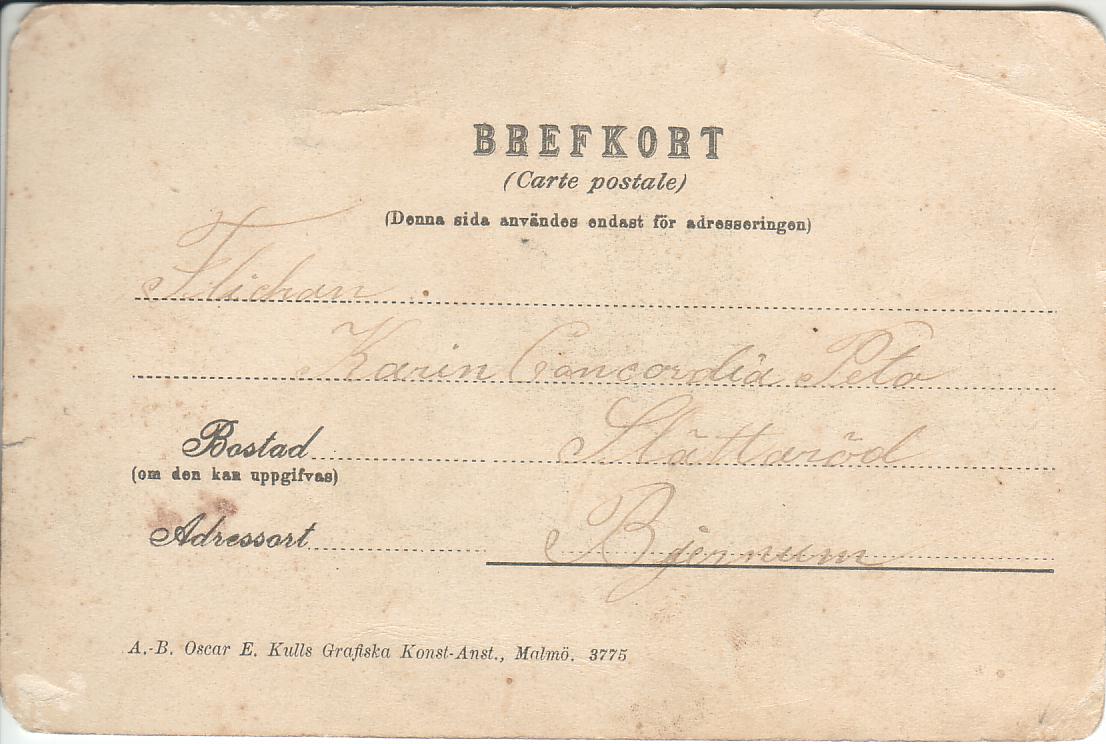 BREFKORT
(Carte postale)
(Denna sida användes endast för adresseringen)
Flickan
Karin Concordia Peto
Bostad Slättaröd
(om den kan uppgifvas)
Adressort Bjernum
A.-B. Oscar E. Kulls Grafiska Konst-Anst., Malmö. 3775